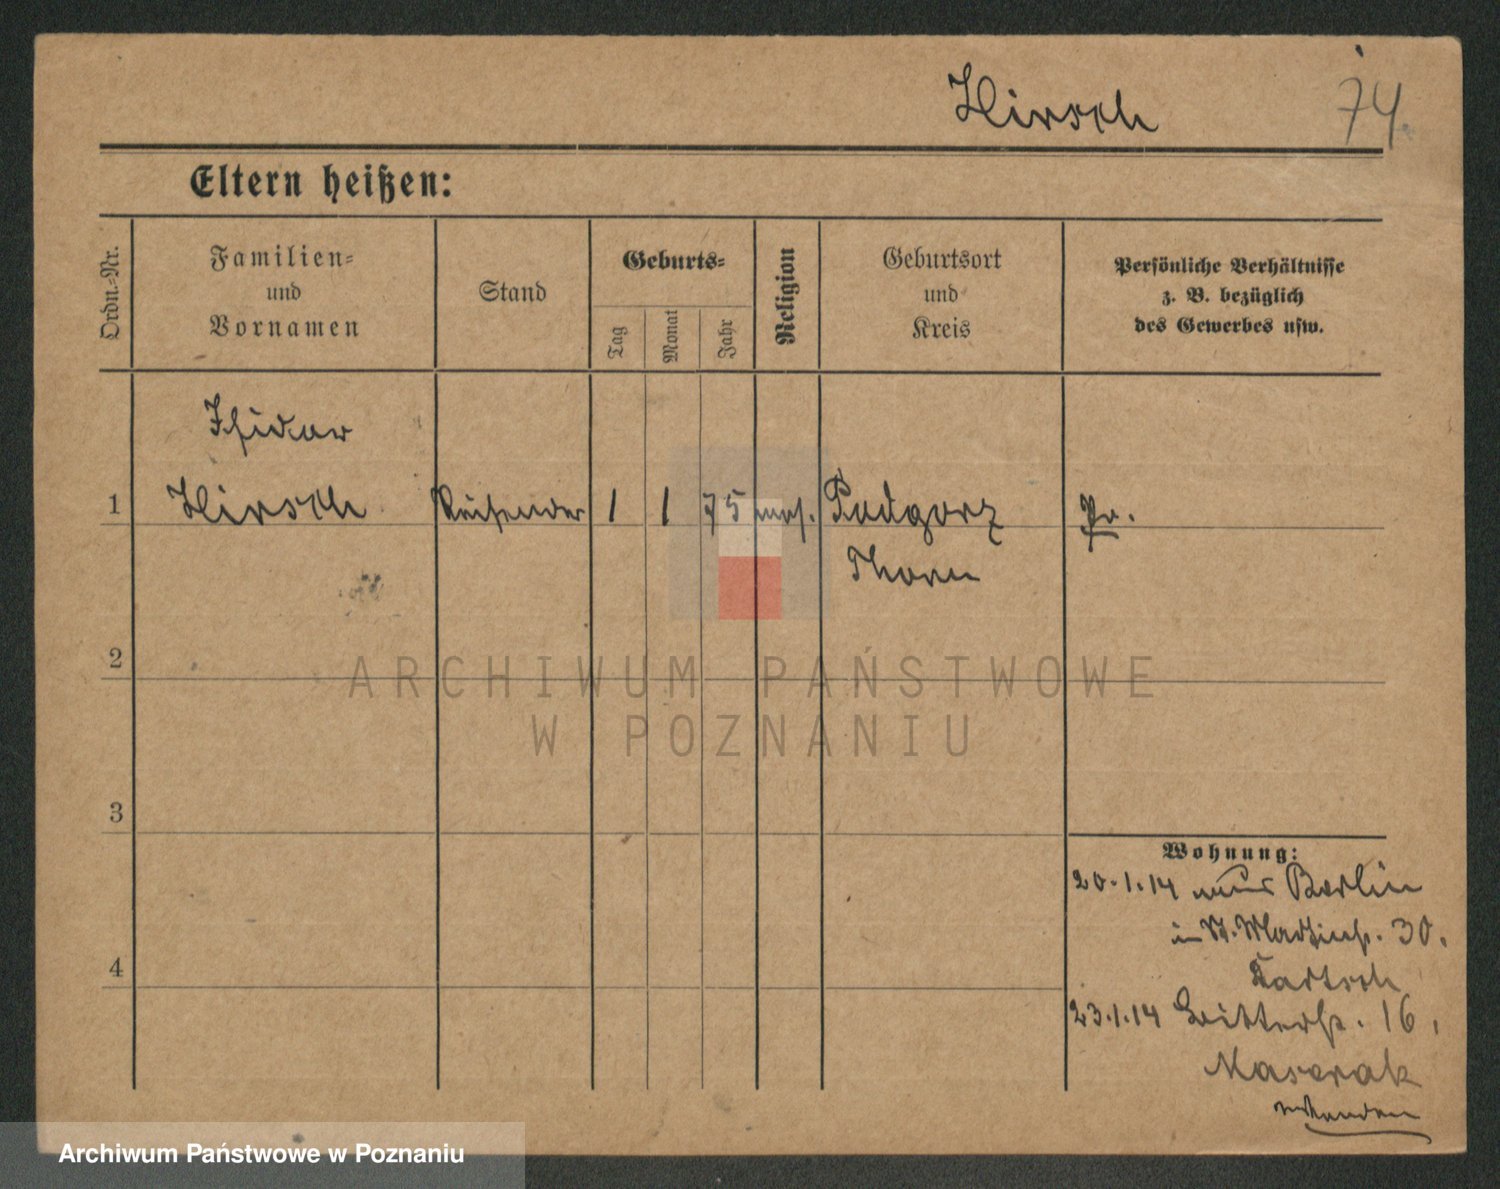 Hirsch 74.
Eltern heißen:
Ordn.-Nr.
Familien-
und
Vornamen
Stand
Geburts-
Tag
Monat
Jahr
Religion
Geburtsort
und
Kreis
Persönliche Verhältnisse
z. B. bezüglich
des Gewerbes usw.
Isidor
1 Hirsch Reisender 1 1 75 mos. Podgorz Pr.
Thorn
2
ARCHIWUM PAŃSTWOWE
W POZNANIU
3
Wohnung:
20.1.14 aus Berlin
in St. Martinstr. 30.
4
23.1.14 Ritterstr. 16.
Archiwum Państwowe w Poznaniu